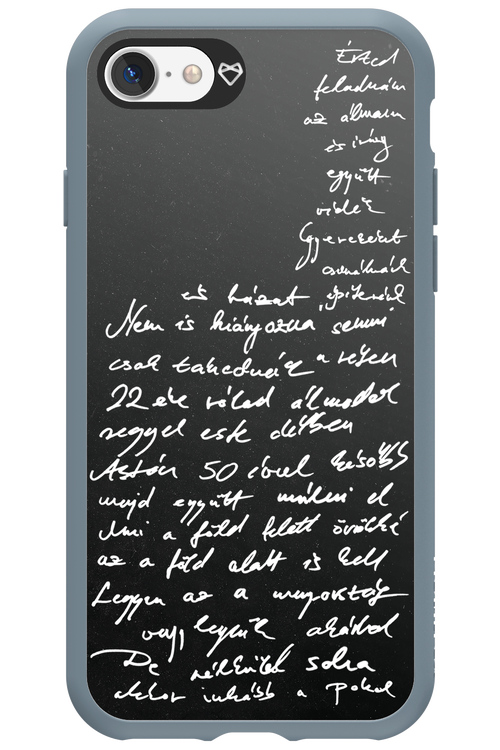 Érted
feladnám
az álmaim
és irány
együtt
vidék
Gyerekeket
csinálnánk
és házat építenénk
Nem is hiányozna semmi
csak takednénk a réten
22 éve rólad álmodok
reggel este délben
Aztán 50 évvel később
majd együtt múlni el
Ami a föld felett örökké
az a föld alatt is kell
Legyen az a mennyország
vagy legyünk akárhol
De nélküled soha
akkor inkább a pokol